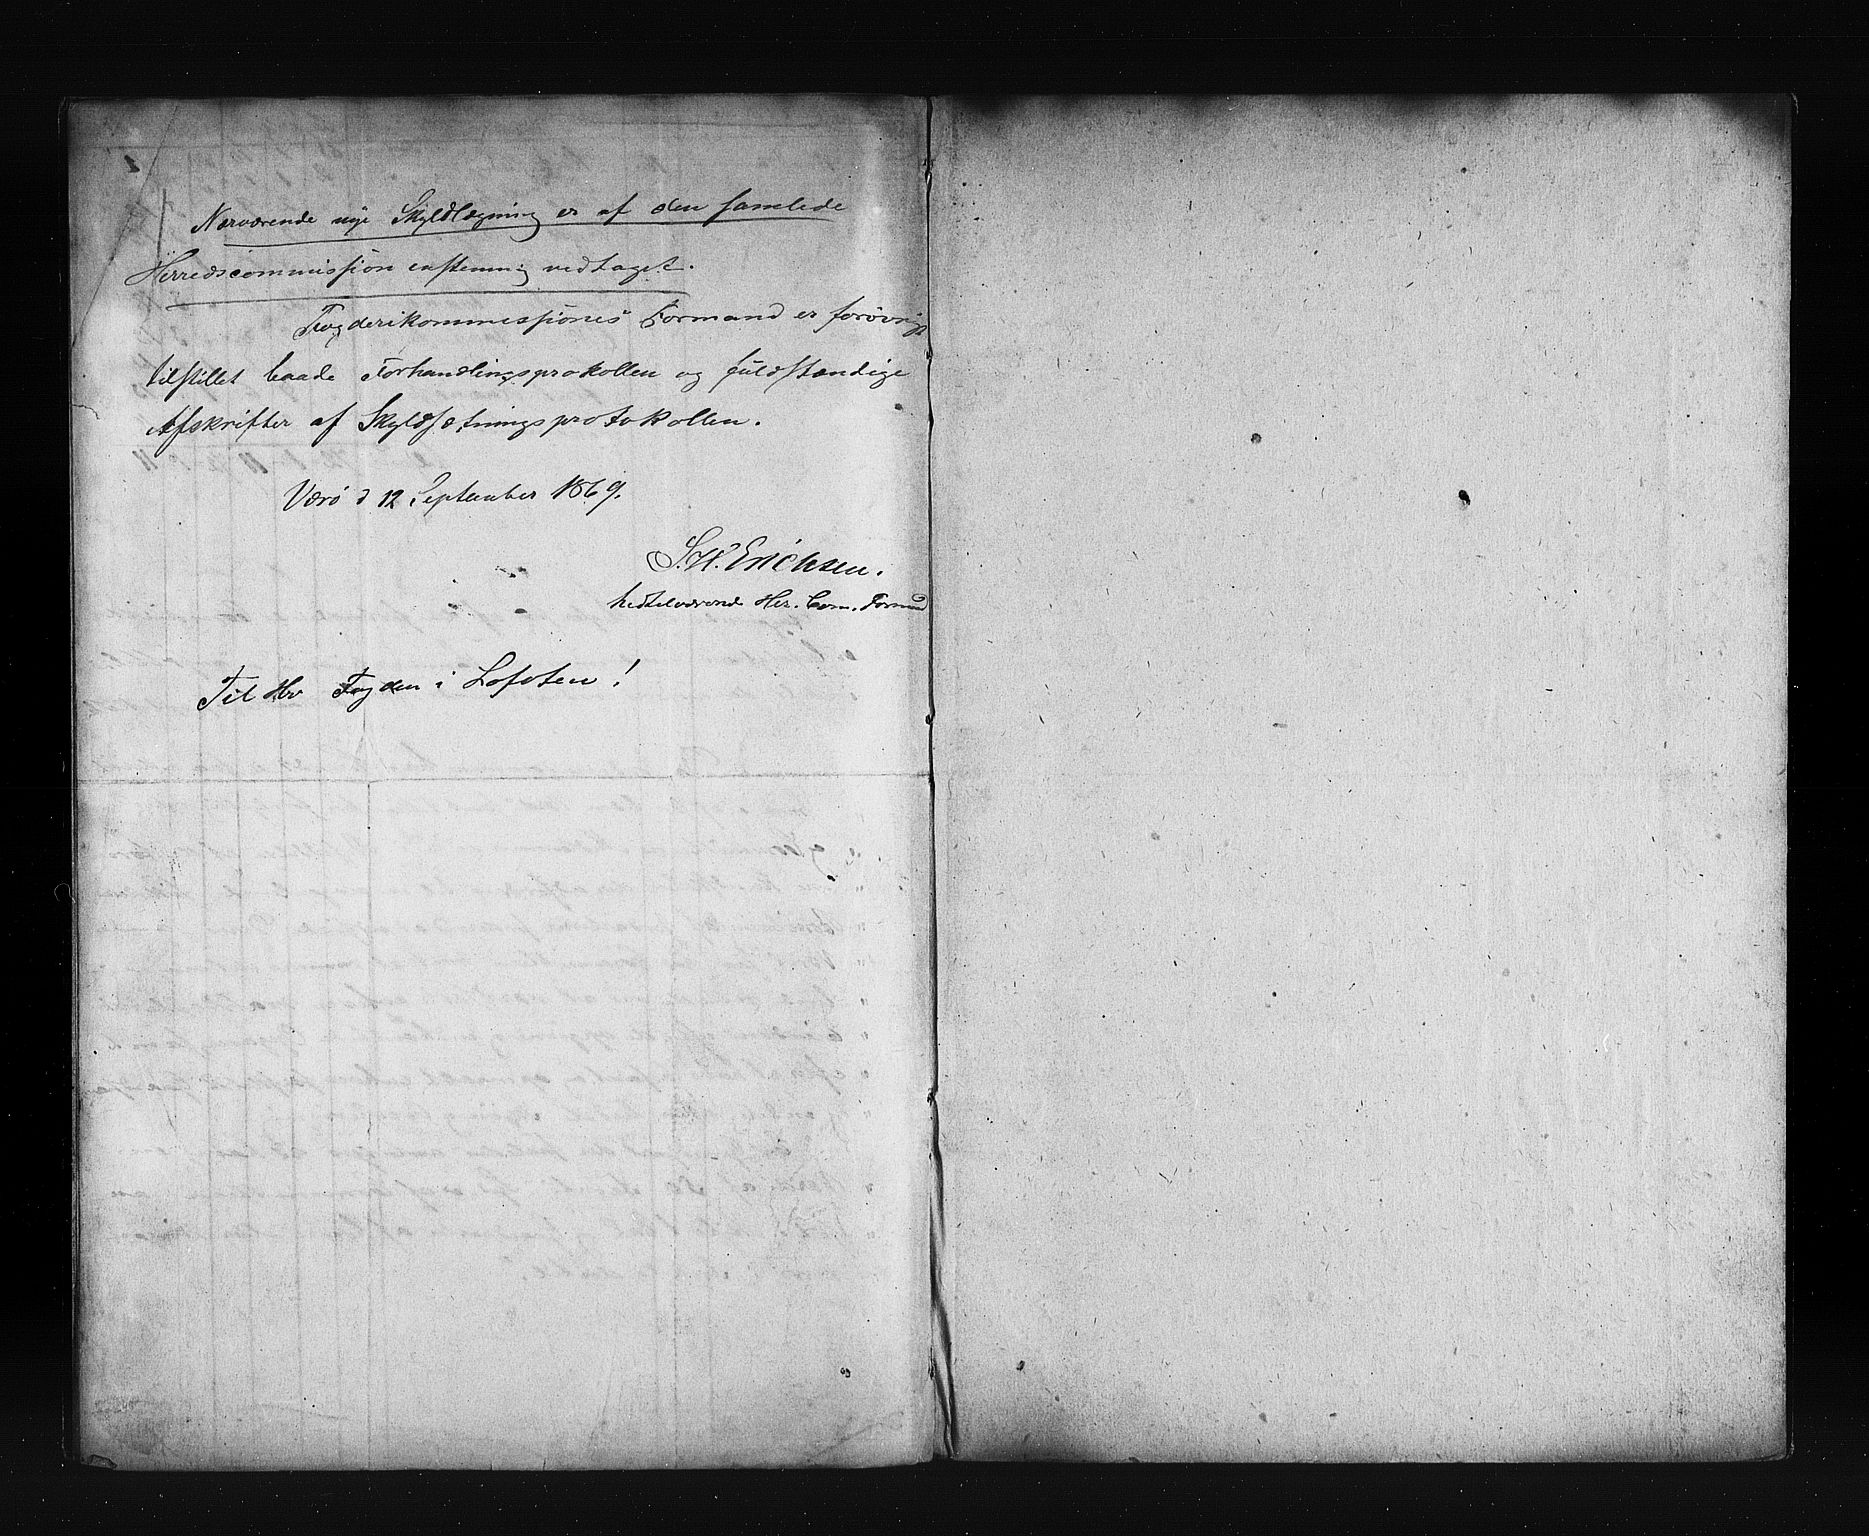 Nærværende nye Skyldlægning er af den samlede
Herredscommission enstemmig vedtaget.
Fogderikommissiones Formand er forøvrigt
tilstillet baade Forhandlingsprokollen og fuldstændige
Afskrifter af Skyldsætningsprotokollen.
Værø d 12 September 1869.
S. H. Erichsen.
hedtilværende Her. Com. Formand
Til Hr Fogden i Lofoten!